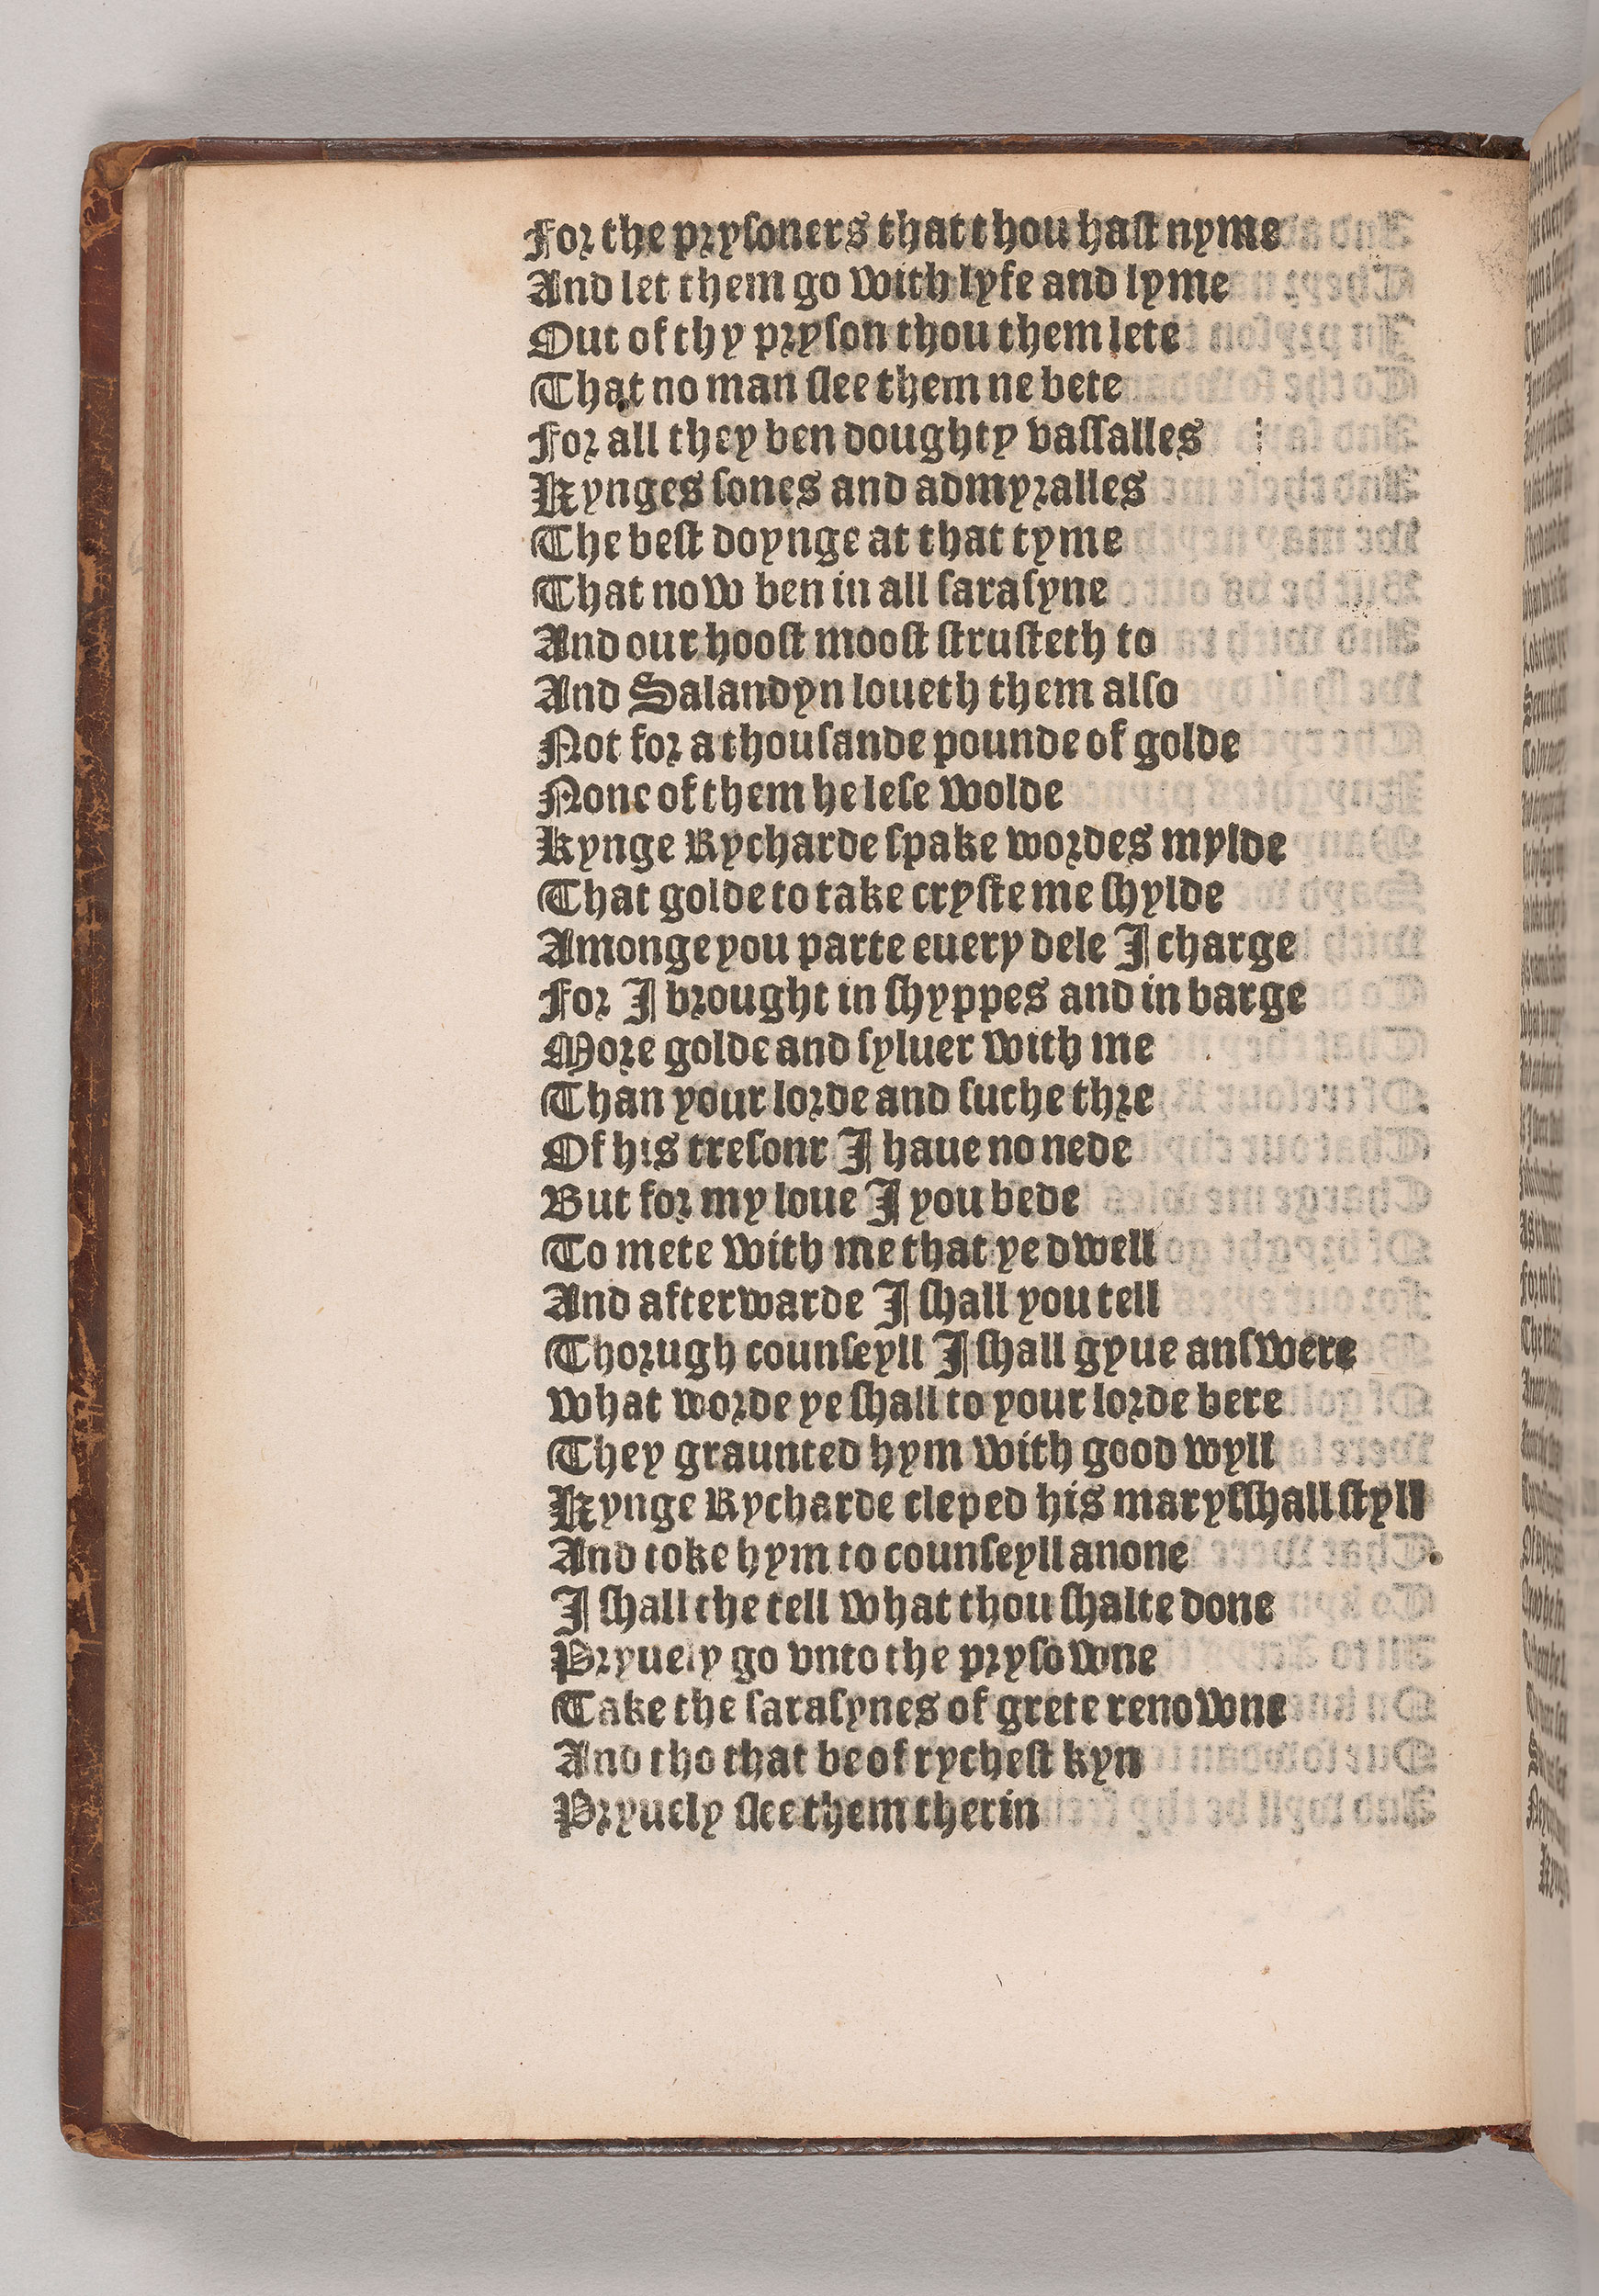 For the pryſoners that thou haſt nyme
And let them go with lyfe and lyme
Out of thy pryſon thou them lete
That no man ſlee them ne bete
For all they ben doughty vaſſalles
Kynges ſones and admyralles
The beſt doynge at that tyme
That now ben in all ſaraſyne
And our hooſt mooſt ſtruſteth to
And Salandyn loueth them alſo
Not for a thouſande pounde of golde
None of them he leſe wolde
Kynge Rycharde ſpake wordes mylde
That golde to take cryſte me ſhylde
Amonge you parte euery dele I charge
For I brought in ſhyppes and in barge
More golde and ſyluer with me
Than your lorde and ſuche thre
Of his treſonr I haue no nede
But for my loue I you bede
To mete with me that ye dwell
And afterwarde I ſhall you tell
Thorugh counſeyll I ſhall gyue anſwere
What worde ye ſhall to your lorde bere
They graunted hym with good wyll
Kynge Rycharde cleped his maryſſhall ſtyll
And toke hym to counſeyll anone
I ſhall the tell what thou ſhalte done
Pryuely go vnto the pryſowne
Take the ſaraſynes of grete renowne
And tho that be of rycheſt kyn
Pryuely ſlee them therin